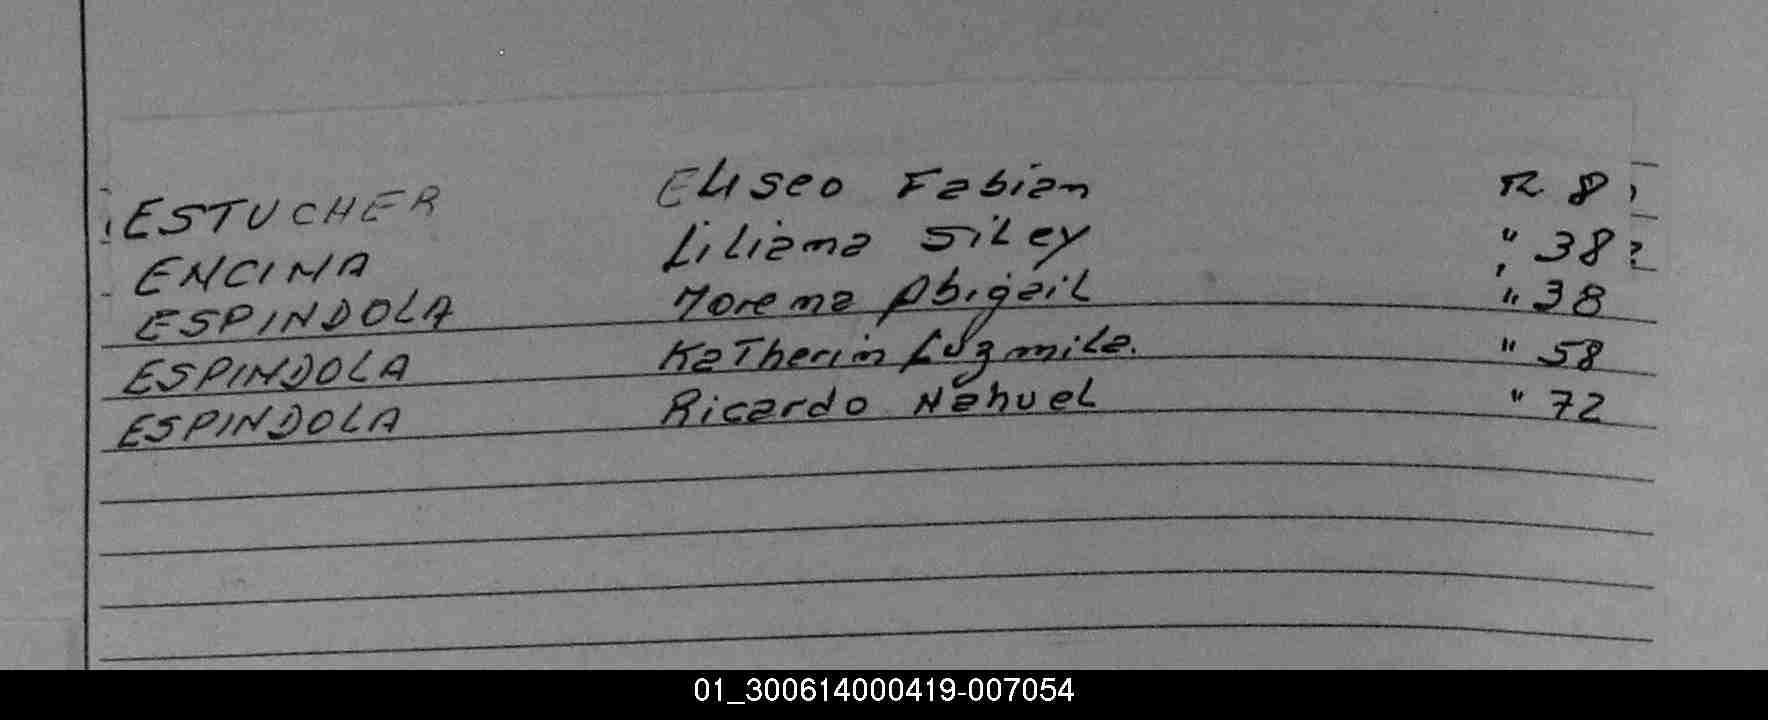 ESTUCHER Eliseo Fabian R 8
ENCINA Liliana Siley " 38
ESPINDOLA Morena Abigail " 38
ESPINDOLA Katherin Luzmila. " 58
ESPINDOLA Ricardo Nahuel " 72
01_300614000419-007054